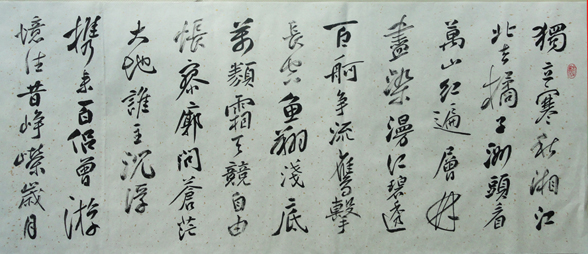 獨立寒秋湘江
北去橘子洲頭看
萬山紅遍層林
盡染漫江碧透
百舸争流鷹擊
長空魚翔淺底
萬類霜天競自由
悵寥廓問蒼茫
大地誰主沉浮
携来百侣曾游
憶往昔崢嶸歲月